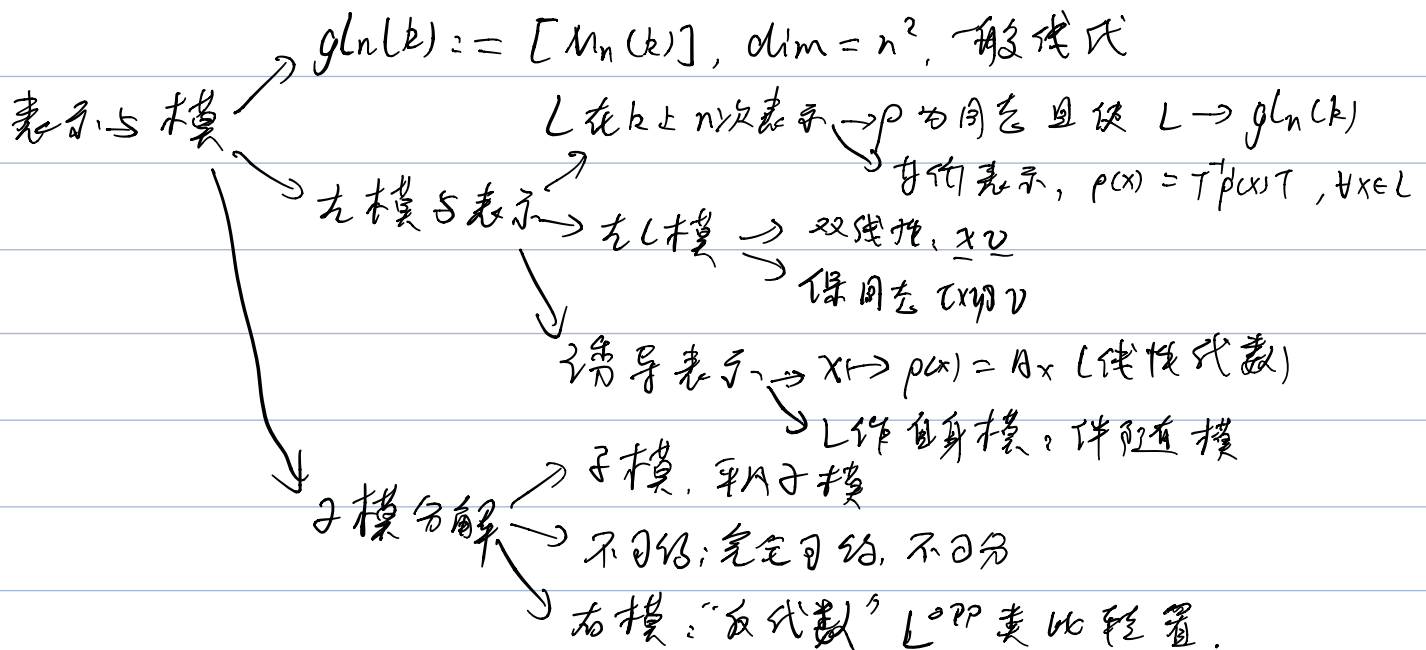 gln(k) := [Mn(k)], dim = n², 一般线代
表示与模
L在k上n次表示 → ρ为同态且使 L → gln(k)
等价表示, ρ(x) = T⁻¹ρ'(x)T, ∀x∈L
左模与表示
左L模 → 双线性: xv
保同态 [xy]v
诱导表示 → x↦ρ(x) = Ax (线性代数)
L作自身模: 伴随模
子模, 平凡子模
子模分解
不可约; 完全可约, 不可分
右模: "反代数" Lᵒᵖᵖ 类比转置.